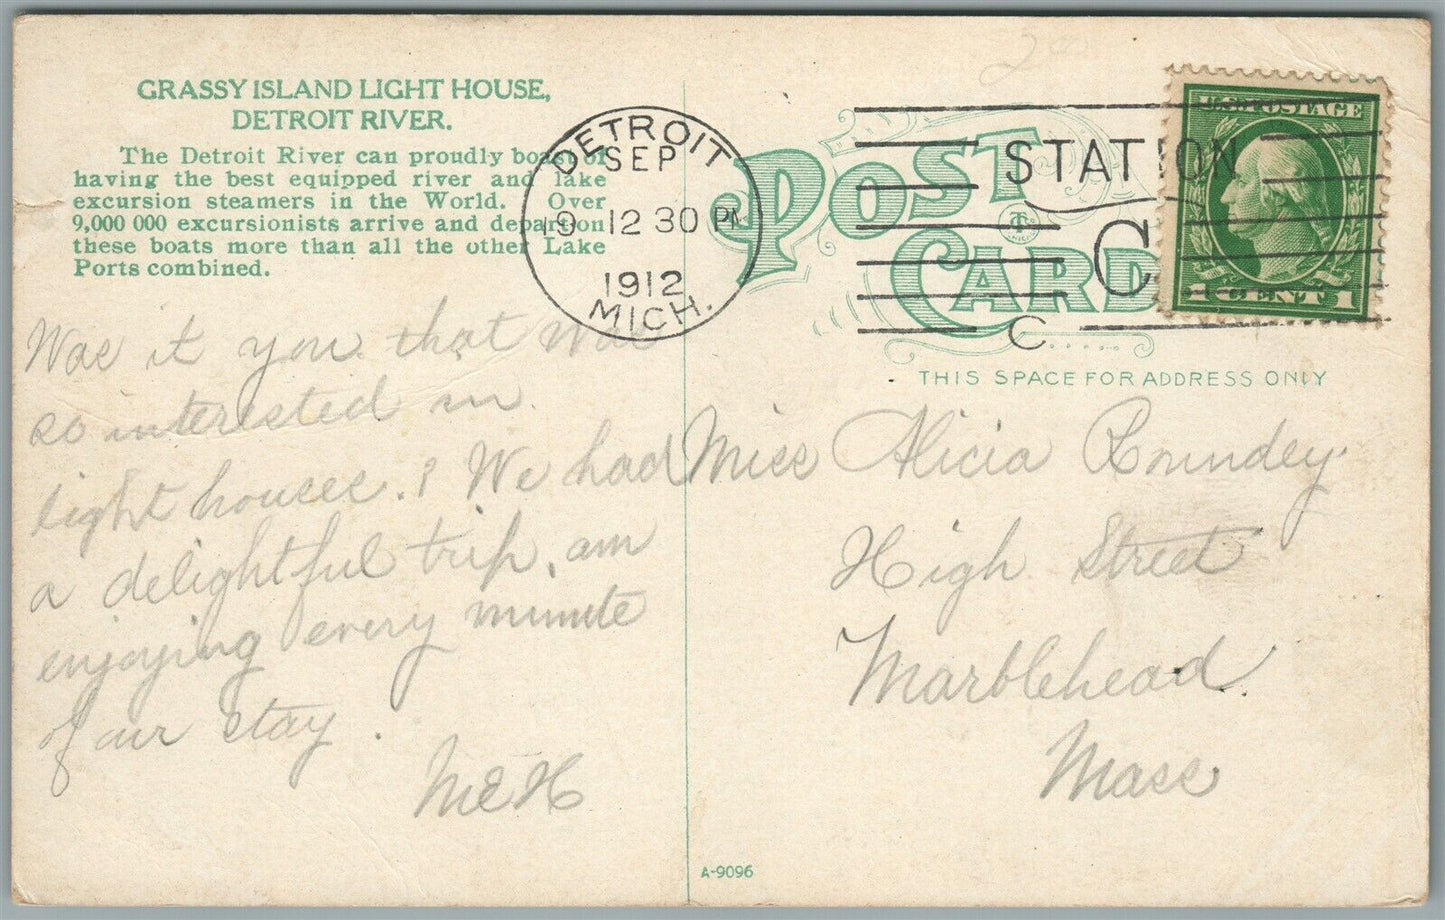 GRASSY ISLAND LIGHT HOUSE,
DETROIT RIVER.
The Detroit River can proudly boast of
having the best equipped river and lake
excursion steamers in the World. Over
9,000 000 excursionists arrive and depart on
these boats more than all the other Lake
Ports combined.
DETROIT
SEP
19 12 30 PM
1912
MICH.
STATION
C
C
POST
CARD
U.S. POSTAGE
1 CENT 1
THIS SPACE FOR ADDRESS ONLY
Was it you that was
so interested in
light houses.? We had
a delightful trip, am
enjoying every minute
of our stay.
McH
Miss Alicia Roundey
High Street
Marblehead
Mass
A-9096